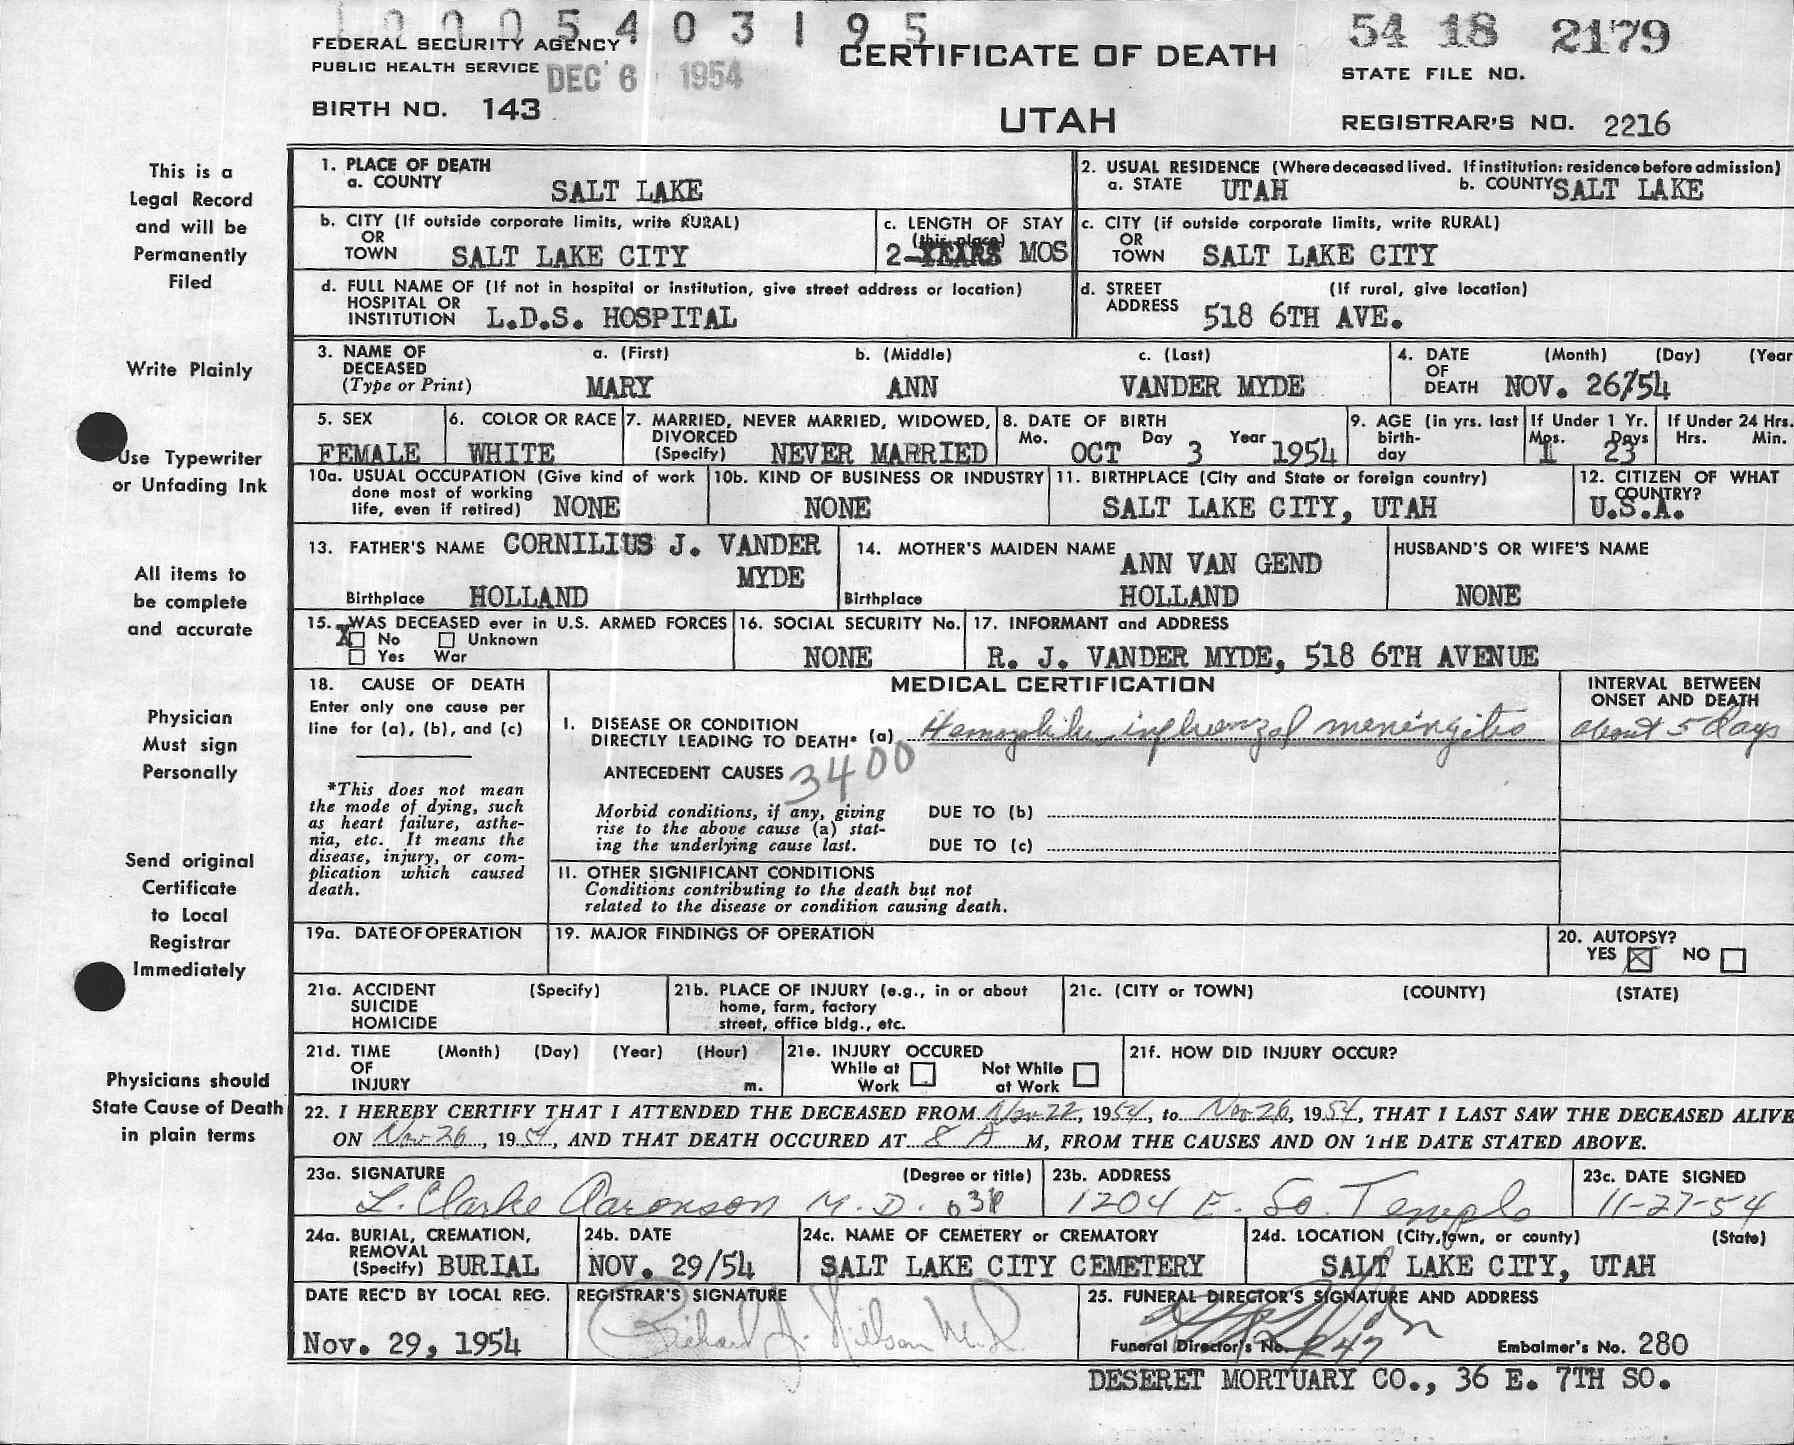 1 0 0 0 5 4 0 3 1 9 5
54 18 2179
FEDERAL SECURITY AGENCY
PUBLIC HEALTH SERVICE
DEC 6 1954
CERTIFICATE OF DEATH
STATE FILE NO.
BIRTH NO. 143
UTAH
REGISTRAR'S NO. 2216
This is a
Legal Record
and will be
Permanently
Filed
Write Plainly
Use Typewriter
or Unfading Ink
All items to
be complete
and accurate
Physician
Must sign
Personally
Send original
Certificate
to Local
Registrar
Immediately
Physicians should
State Cause of Death
in plain terms
1. PLACE OF DEATH
a. COUNTY SALT LAKE
2. USUAL RESIDENCE (Where deceased lived. If institution: residence before admission)
a. STATE UTAH b. COUNTY SALT LAKE
b. CITY (If outside corporate limits, write RURAL)
OR
TOWN SALT LAKE CITY
c. LENGTH OF STAY
(this place)
2 YEARS MOS
c. CITY (if outside corporate limits, write RURAL)
OR
TOWN SALT LAKE CITY
d. FULL NAME OF (If not in hospital or institution, give street address or location)
HOSPITAL OR
INSTITUTION L.D.S. HOSPITAL
d. STREET (If rural, give location)
ADDRESS 518 6TH AVE.
3. NAME OF a. (First) b. (Middle) c. (Last)
DECEASED
(Type or Print) MARY ANN VANDER MYDE
4. DATE (Month) (Day) (Year
OF
DEATH NOV. 26/54
5. SEX
FEMALE
6. COLOR OR RACE
WHITE
7. MARRIED, NEVER MARRIED, WIDOWED,
DIVORCED
(Specify) NEVER MARRIED
8. DATE OF BIRTH
Mo. Day Year
OCT 3 1954
9. AGE (in yrs. last
birth-
day
If Under 1 Yr.
Mos. Days
1 23
If Under 24 Hrs.
Hrs. Min.
10a. USUAL OCCUPATION (Give kind of work
done most of working
life, even if retired) NONE
10b. KIND OF BUSINESS OR INDUSTRY
NONE
11. BIRTHPLACE (City and State or foreign country)
SALT LAKE CITY, UTAH
12. CITIZEN OF WHAT
COUNTRY?
U.S.A.
13. FATHER'S NAME CORNILIUS J. VANDER
MYDE
Birthplace HOLLAND
14. MOTHER'S MAIDEN NAME
ANN VAN GEND
Birthplace HOLLAND
HUSBAND'S OR WIFE'S NAME
NONE
15. WAS DECEASED ever in U.S. ARMED FORCES
X No Unknown
Yes War
16. SOCIAL SECURITY No.
NONE
17. INFORMANT and ADDRESS
R. J. VANDER MYDE, 518 6TH AVENUE
18. CAUSE OF DEATH
Enter only one cause per
line for (a), (b), and (c)
*This does not mean
the mode of dying, such
as heart failure, asthe-
nia, etc. It means the
disease, injury, or com-
plication which caused
death.
MEDICAL CERTIFICATION
INTERVAL BETWEEN
ONSET AND DEATH
I. DISEASE OR CONDITION
DIRECTLY LEADING TO DEATH* (a) Hemophilus influenzal meningitis about 5 days
ANTECEDENT CAUSES 3400
Morbid conditions, if any, giving
rise to the above cause (a) stat-
ing the underlying cause last.
DUE TO (b)
DUE TO (c)
II. OTHER SIGNIFICANT CONDITIONS
Conditions contributing to the death but not
related to the disease or condition causing death.
19a. DATE OF OPERATION
19. MAJOR FINDINGS OF OPERATION
20. AUTOPSY?
YES X NO
21a. ACCIDENT (Specify)
SUICIDE
HOMICIDE
21b. PLACE OF INJURY (e.g., in or about
home, farm, factory
street, office bldg., etc.
21c. (CITY or TOWN) (COUNTY) (STATE)
21d. TIME (Month) (Day) (Year) (Hour)
OF
INJURY m.
21e. INJURY OCCURED
While at Work Not While at Work
21f. HOW DID INJURY OCCUR?
22. I HEREBY CERTIFY THAT I ATTENDED THE DECEASED FROM Nov 22, 1954, to Nov 26, 1954, THAT I LAST SAW THE DECEASED ALIVE
ON Nov 26, 1954, AND THAT DEATH OCCURED AT 8 A M, FROM THE CAUSES AND ON THE DATE STATED ABOVE.
23a. SIGNATURE (Degree or title)
L. Clarke Aaronson M.D.
23b. ADDRESS
1204 E. So. Temple
23c. DATE SIGNED
11-27-54
24a. BURIAL, CREMATION,
REMOVAL
(Specify) BURIAL
24b. DATE
NOV. 29/54
24c. NAME OF CEMETERY or CREMATORY
SALT LAKE CITY CEMETERY
24d. LOCATION (City, town, or county) (State)
SALT LAKE CITY, UTAH
DATE REC'D BY LOCAL REG.
Nov. 29, 1954
REGISTRAR'S SIGNATURE
Richard J. Nielson M.D.
25. FUNERAL DIRECTOR'S SIGNATURE AND ADDRESS
Funeral Director's No. Embalmer's No. 280
DESERET MORTUARY CO., 36 E. 7TH SO.